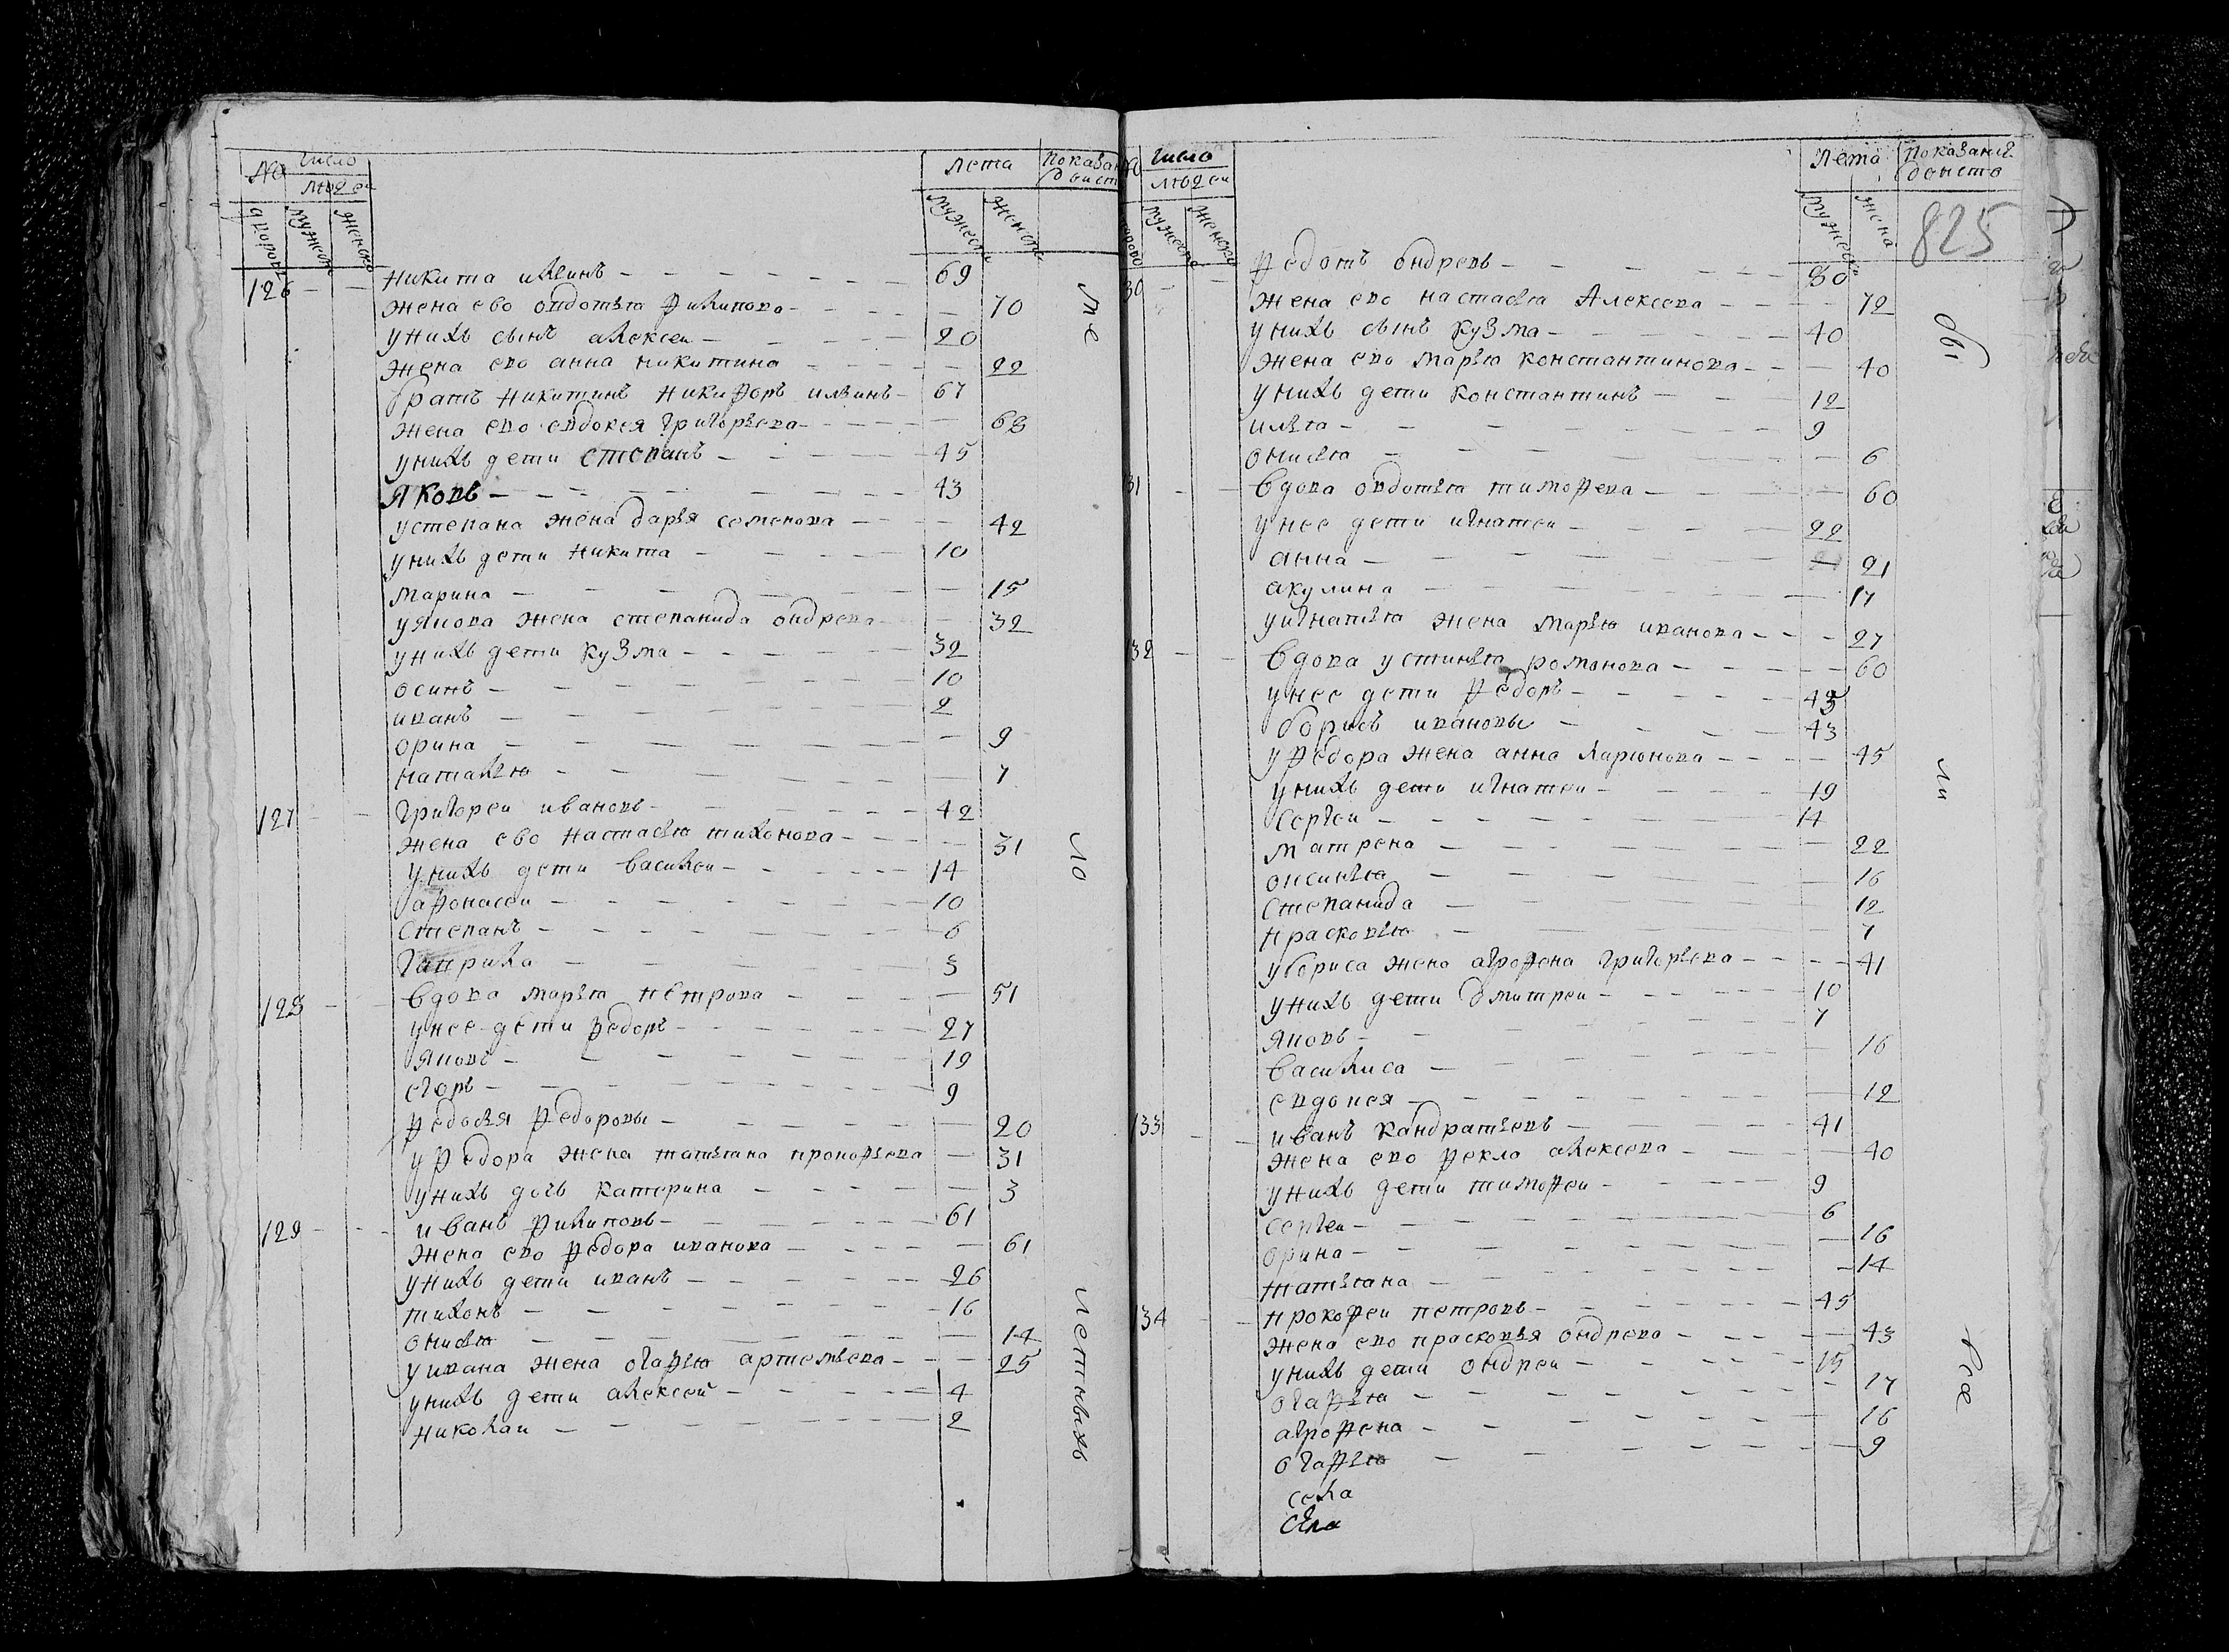 № число людеи Лета Показание
дворовъ мужеска женска мужеска женска
126 Никита илинъ 69
жена ево овдотья филипова 70
у нихъ сынъ алексеи 20
жена ево анна никитина 22
братъ никитинъ никифоръ ильинъ 67
жена ево евдокея григорьева 68
у нихъ дети степанъ 45
яковъ 43
у степана жена дарья семенова 42
у нихъ дети никита 10
марина 15
у якова жена степанида ондрева 32
у нихъ дети кузма 32
осипъ 10
иванъ 2
орина 9
наталья 7
127 григореи ивановъ 42
жена ево настасья тихонова 31
у нихъ дети василеи 14
афонасеи 10
степанъ 6
гаврила 3
128 вдова марья петрова 51
у нее дети федоръ 27
яковъ 19
егоръ 9
федосья федоровы 20
у федора жена татьяна прокофьева 31
у нихъ дочь катерина 3
129 иванъ филиповъ 61
жена ево федора иванова 61
у нихъ дети иванъ 26
тихонъ 16
онисья 14
у ивана жена огафья артемьева 25
у нихъ дети алексей 4
николаи 2
ме
ло
летныхъ
число людеи Лета Показание
мужеска женска мужеска жена
825
30 федотъ ондревъ 80
жена ево настасья Алексева 72
у нихъ сынъ кузма 40
жена ево марья константинова 40
у нихъ дети константинъ 12
илья 9
онисья 6
31 вдова овдотья тимофева 60
у нее дети игнатеи 22
анна 21
акулина 17
у игнатья жена марья иванова 27
32 вдова устинья романова 60
у нее дети федоръ 45
борисъ ивановы 43
у федора жена анна ларионова 45
у нихъ дети игнатеи 19
сергеи 14
матрена 22
оксинья 16
степанида 12
прасковья 7
у бориса жена агрофена григорьева 41
у нихъ дети дмитреи 10
яковъ 7
василиса 16
евдокея 12
133 иванъ кандратьевъ 41
жена ево фекла алексева 40
у нихъ дети тимофеи 9
сергеи 6
орина 16
татьяна 14
134 прокофеи петровъ 45
жена ево прасковья ондрева 43
у нихъ дети ондреи 15
огафья 17
агрофена 16
огафья 9
села
обы
ли
все